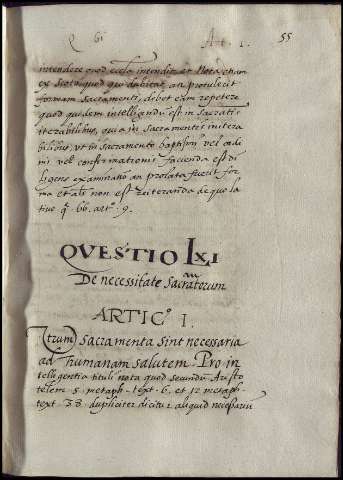 Q 61 Art. 1. 55
intendere quod ecclã intendit et Nota etiam
ex Scoto quod qui dubitat an protulerit
formam Sacramenti, debet eam repetere
quod quidem intelligendũ est in Sacratis
iterabilibus, quia in Sacramentis initera
bilibus, ut in sacramento baptismi vel ordi
nis vel confirmationis facienda est di
ligens examinatio an prolata fuerit for
ma et aliter non est reiteranda de quo la
tius q. 66. art. 9.
QVESTIO LXI
De necessitate Sacramtorum
ARTIC. I.
Vtrum Sacramenta sint necessaria
ad humanam salutem. Pro in
telligentia tituli nota quod secundũ Aristo
telem 5. metaph. text. 6. et 12 metaph.
text. 38. dupliciter dicitur aliquid necessariũ